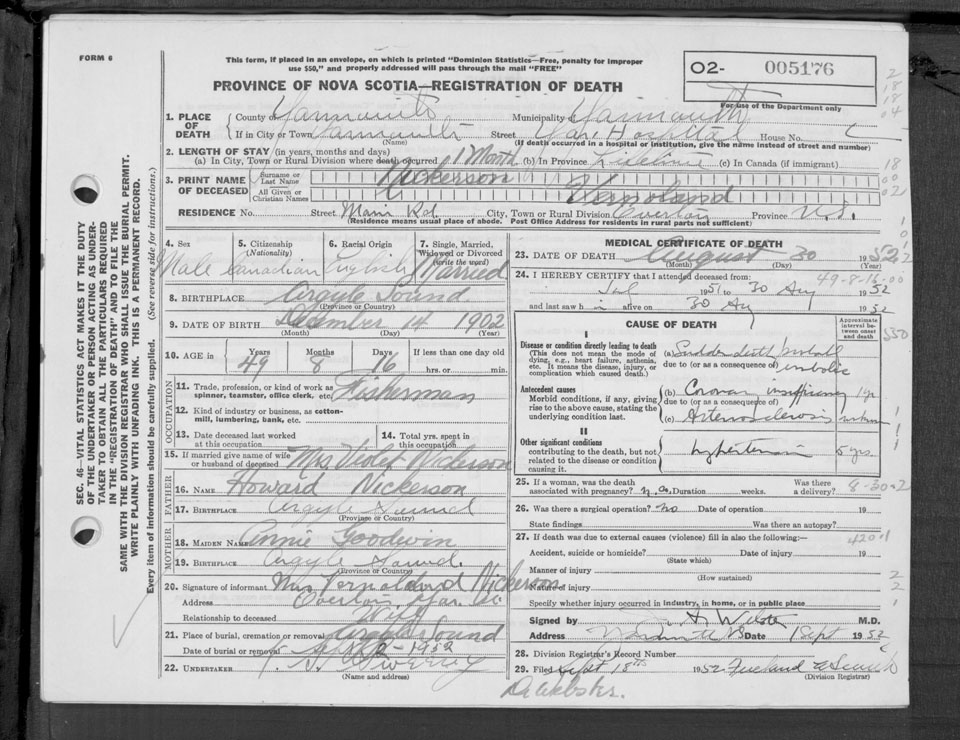 FORM 6
This form, if placed in an envelope, on which is printed "Dominion Statistics—Free, penalty for improper
use $50," and properly addressed will pass through the mail "FREE"
PROVINCE OF NOVA SCOTIA—REGISTRATION OF DEATH
O2- 005176
For use of the Department only
1. PLACE OF DEATH
County of Yarmouth Municipality of Yarmouth
If in City or Town Yarmouth Street Yar. Hospital House No.
(Name) (If death occurred in a hospital or institution, give the name instead of street and number)
2. LENGTH OF STAY (in years, months and days)
(a) In City, Town or Rural Division where death occurred 1 Month (b) In Province Lifetime (c) In Canada (if immigrant)
3. PRINT NAME OF DECEASED
Surname or Last Name Nickerson
All Given or Christian Names Vernoland
RESIDENCE No. Street Main Rd. City, Town or Rural Division Overton Province N.S.
(Residence means usual place of abode. Post Office Address for residents in rural parts not sufficient)
4. Sex 5. Citizenship (Nationality) 6. Racial Origin 7. Single, Married, Widowed or Divorced (write the word)
Male Canadian English Married
8. BIRTHPLACE Argyle Sound
(Province or Country)
9. DATE OF BIRTH December 14 1902
(Month) (Day) (Year)
10. AGE in Years Months Days If less than one day old
49 8 16 hrs. or min.
OCCUPATION
11. Trade, profession, or kind of work as spinner, teamster, office clerk, etc. Fisherman
12. Kind of industry or business, as cotton-mill, lumbering, bank, etc.
13. Date deceased last worked at this occupation
14. Total yrs. spent in this occupation
15. If married give name of wife or husband of deceased Mrs Violet Nickerson
FATHER
16. NAME Howard Nickerson
17. BIRTHPLACE Argyle Sound
(Province or Country)
MOTHER
18. MAIDEN NAME Annie Goodwin
19. BIRTHPLACE Argyle Sound.
(Province or Country)
20. Signature of informant Mrs Vernoland Nickerson
Address Overton Yar.
Relationship to deceased Wife
21. Place of burial, cremation or removal Argyle Sound
Date of burial or removal Sept 2-1952
22. UNDERTAKER Sweeney
(Name and address)
MEDICAL CERTIFICATE OF DEATH
23. DATE OF DEATH August 30 1952
(Month) (Day) (Year)
24. I HEREBY CERTIFY that I attended deceased from:
49-8-16-00
1951 to 30 Aug 1952
and last saw h alive on 30 Aug 1952
CAUSE OF DEATH
Approximate interval between onset and death
I
Disease or condition directly leading to death
(This does not mean the mode of dying, e.g., heart failure, asthenia, etc. It means the disease, injury, or complication which caused death.)
(a) Sudden death
due to (or as a consequence of) embolic
Antecedent causes
Morbid conditions, if any, giving rise to the above cause, stating the underlying condition last.
(b) Coronary insufficiency 1 yr
due to (or as a consequence of)
(c) Arteriosclerosis unknown
II
Other significant conditions
contributing to the death, but not related to the disease or condition causing it.
hypertension 5 yrs.
25. If a woman, was the death associated with pregnancy? Duration weeks. Was there a delivery?
8-30-2
26. Was there a surgical operation? No Date of operation 19
State findings Was there an autopsy?
27. If death was due to external causes (violence) fill in also the following:—
420.1
Accident, suicide or homicide? Date of injury 19
(State which)
Manner of injury
(How sustained)
Nature of injury
Specify whether injury occurred in industry, in home, or in public place
Signed by Webster M.D.
Address Yarmouth NS Date 1 Sept 1952
28. Division Registrar's Record Number
29. Filed Sept 18th 1952
(Division Registrar)
Dr Webster.
SEC. 46—VITAL STATISTICS ACT MAKES IT THE DUTY
OF THE UNDERTAKER OR PERSON ACTING AS UNDER-
TAKER TO OBTAIN ALL THE PARTICULARS REQUIRED
IN THE "REGISTRATION OF DEATH" AND TO FILE THE
SAME WITH THE DIVISION REGISTRAR WHO SHALL ISSUE THE BURIAL PERMIT.
WRITE PLAINLY WITH UNFADING INK. THIS IS A PERMANENT RECORD.
Every item of information should be carefully supplied. (See reverse side for instructions.)